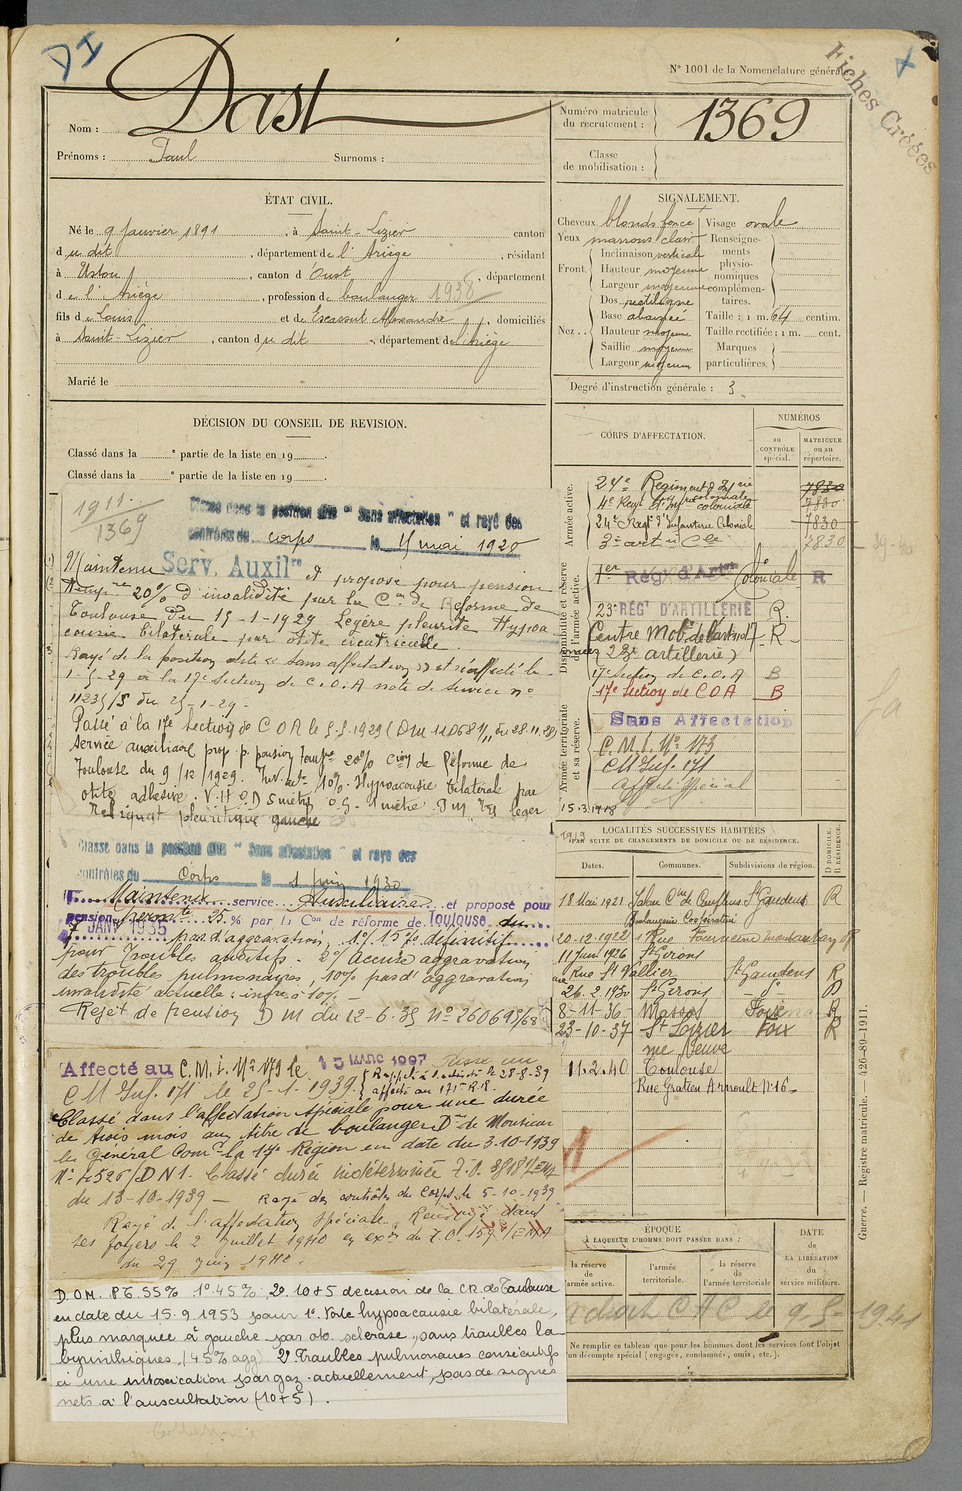 N° 1001 de la Nomenclature générale
Fiches Créées
Nom : Dast
Prénoms : Paul Surnoms :
Numéro matricule du recrutement : 1369
Classe de mobilisation :
ÉTAT CIVIL.
Né le 9 janvier 1891, à Saint-Lizier canton
du dit, département de l'Ariège, résidant
à Ustou, canton d'Oust, département
de l'Ariège, profession de boulanger 1938
fils de Louis et de Escassut Alexandre, domiciliés
à Saint-Lizier, canton du dit, département de l'Ariège
Marié le
SIGNALEMENT.
Cheveux blonds foncé Visage ovale
Yeux marrons clair
Front. Inclinaison verticale
Hauteur moyenne
Largeur moyenne
Nez.. Dos rectiligne
Base abaissé
Hauteur moyenne
Saillie moyenne
Largeur moyenne
Renseignements physionomiques complémentaires.
Taille : 1 m. 64 centim.
Taille rectifiée : 1 m. cent.
Marques particulières.
Degré d'instruction générale : 3.
DÉCISION DU CONSEIL DE REVISION.
Classé dans la e partie de la liste en 19 .
Classé dans la e partie de la liste en 19 .
1911
1369
Classé dans la position dite "Sans affectation" et rayé des
contrôles du corps le mai 1920
Maintenu Serv. Auxilre et proposé pour pension
Tempre 20% d'invalidité par la Con de Réforme de
Toulouse du 15-1-1929 Légère pleurite Hypoa
cousie bilatérale par otite cicatricielle.
Rayé de la position dite "sans affectation" et réaffecté le
1-5-29 à la 17e section de C.O.A note de service n°
du 25-1-29.
Passé à la 17e Section de C O A le
Service auxiliaire prop. p. pension tempre 20% Cion de Réforme de
Toulouse du 9/12/1929. 10% Hypoacousie bilatérale par
otite adhésive. V.H O.D 5 mètres O.G. 1 mètre léger
Reliquat pleurétique gauche
Classé dans la position dite "Sans affectation" et rayé des
contrôles du Corps le 1 Juin 1930
Maintenu service Auxiliaire et proposé pour
pension permte 25 % par la Con de réforme de Toulouse du
7 JANV 1935 pas d'aggravation, 1°) 15% définitif
pour troubles auditifs. 2° Accuse aggravation
des troubles pulmonaires, 10% pas d'aggravation
invalidité actuelle : infre à 10%.
Rejet de pension D M du 12-6-35 N°
Affecté au C.M.I. N° 173 le 15 MARS
C M Inf. 171 le 25-1-1939. Rappelé à l'activité le 28-8-39
affecté au 171e R.R.
Classé dans l'affectation spéciale pour une durée
de trois mois au titre de boulanger Don de Monsieur
le Général Comt la 17e Région en date du 3-10-1939
N° 4526/DN1. Classé durée indéterminée
du 13-10-1939 — Rayé des contrôles du Corps le 5-10-1939
Rayé de l'affectation spéciale. Renvoyé dans
ses foyers le 2 juillet 1940 en exon du
du 29 Juin 1940.
D.O.M. P.T. 55% 1° 45% 2° 10+5 décision de la C.R. de Toulouse
en date du 15.9.1953 pour 1° Forte hypoacousie bilatérale,
plus marquée à gauche par oto. sclérose, sans troubles la
byrinthiques. (45% agg) 2° Troubles pulmonaires consécutifs
à une intoxication par gaz. actuellement, pas de signes
nets à l'auscultation (10+5).
CORPS D'AFFECTATION.
NUMÉROS
au CONTRÔLE spécial.
MATRICULE ou au répertoire.
Armée active.
24e Régiment d'Infrie coloniale 7830
4e Regt d'Infrie coloniale 7830
24e Regt d'Infanterie Coloniale 7830
3e artie Cle 7830
Disponibilité et réserve de l'armée active.
1er Régt d'Arton Coloniale R
23e RÉGt D'ARTILLERIE R
Centre Mobn de l'artie 17 R
(23e artillerie)
17e section de C.O.A B
17e Section de COA B
Armée territoriale et sa réserve.
Sans Affectation
C.M.I. N° 173
CM Inf. 171
Affecté spécial
LOCALITÉS SUCCESSIVES HABITÉES
PAR SUITE DE CHANGEMENTS DE DOMICILE OU DE RÉSIDENCE.
Dates. Communes. Subdivisions de région. D. DOMICILE. R. RÉSIDENCE.
18 Mai 1921 St Gaudens R
Boulangerie Coopérative
20-12-1922 1 Rue R
11 Juin 1926 St Girons
Rue St Vallier St Gaudens R
26-2-1930 St Girons — d° — D
8-11-36 Foix R
23-10-37 St Lizier Foix R
rue Neuve
11.2.40 Toulouse
Rue Gratien Arnoult N° 16
ÉPOQUE
À LAQUELLE L'HOMME DOIT PASSER DANS :
la réserve de l'armée active.
l'armée territoriale.
la réserve de l'armée territoriale
DATE de LA LIBÉRATION du service militaire.
CAC le 9-5-1941
Ne remplir ce tableau que pour les hommes dont les services font l'objet
d'un décompte spécial (engagés, condamnés, omis, etc.).
Guerre. — Registre matricule. — 426-89-1911.